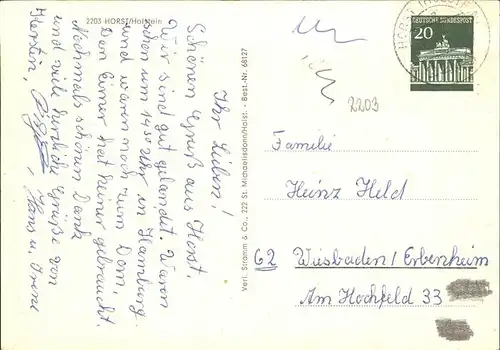 2203 HORST/Holstein
Ihr Lieben!
Schönen Gruß aus Horst.
Wir sind gut gelandet. Waren
schon um 14.30 Uhr in Hamburg
und waren noch zum Dom,
Den Eimer hat keiner gebraucht.
Nochmals schönen Dank
und viele herzliche Grüße von
Kerstin, Hans u.
Verl. Stramm & Co., 222 St. Michaelisdonn/Holst. - Best.-Nr. 68127
DEUTSCHE BUNDESPOST
20
2203
Familie
Heinz Held
62 Wiesbaden/Erbenheim
Am Hochfeld 33